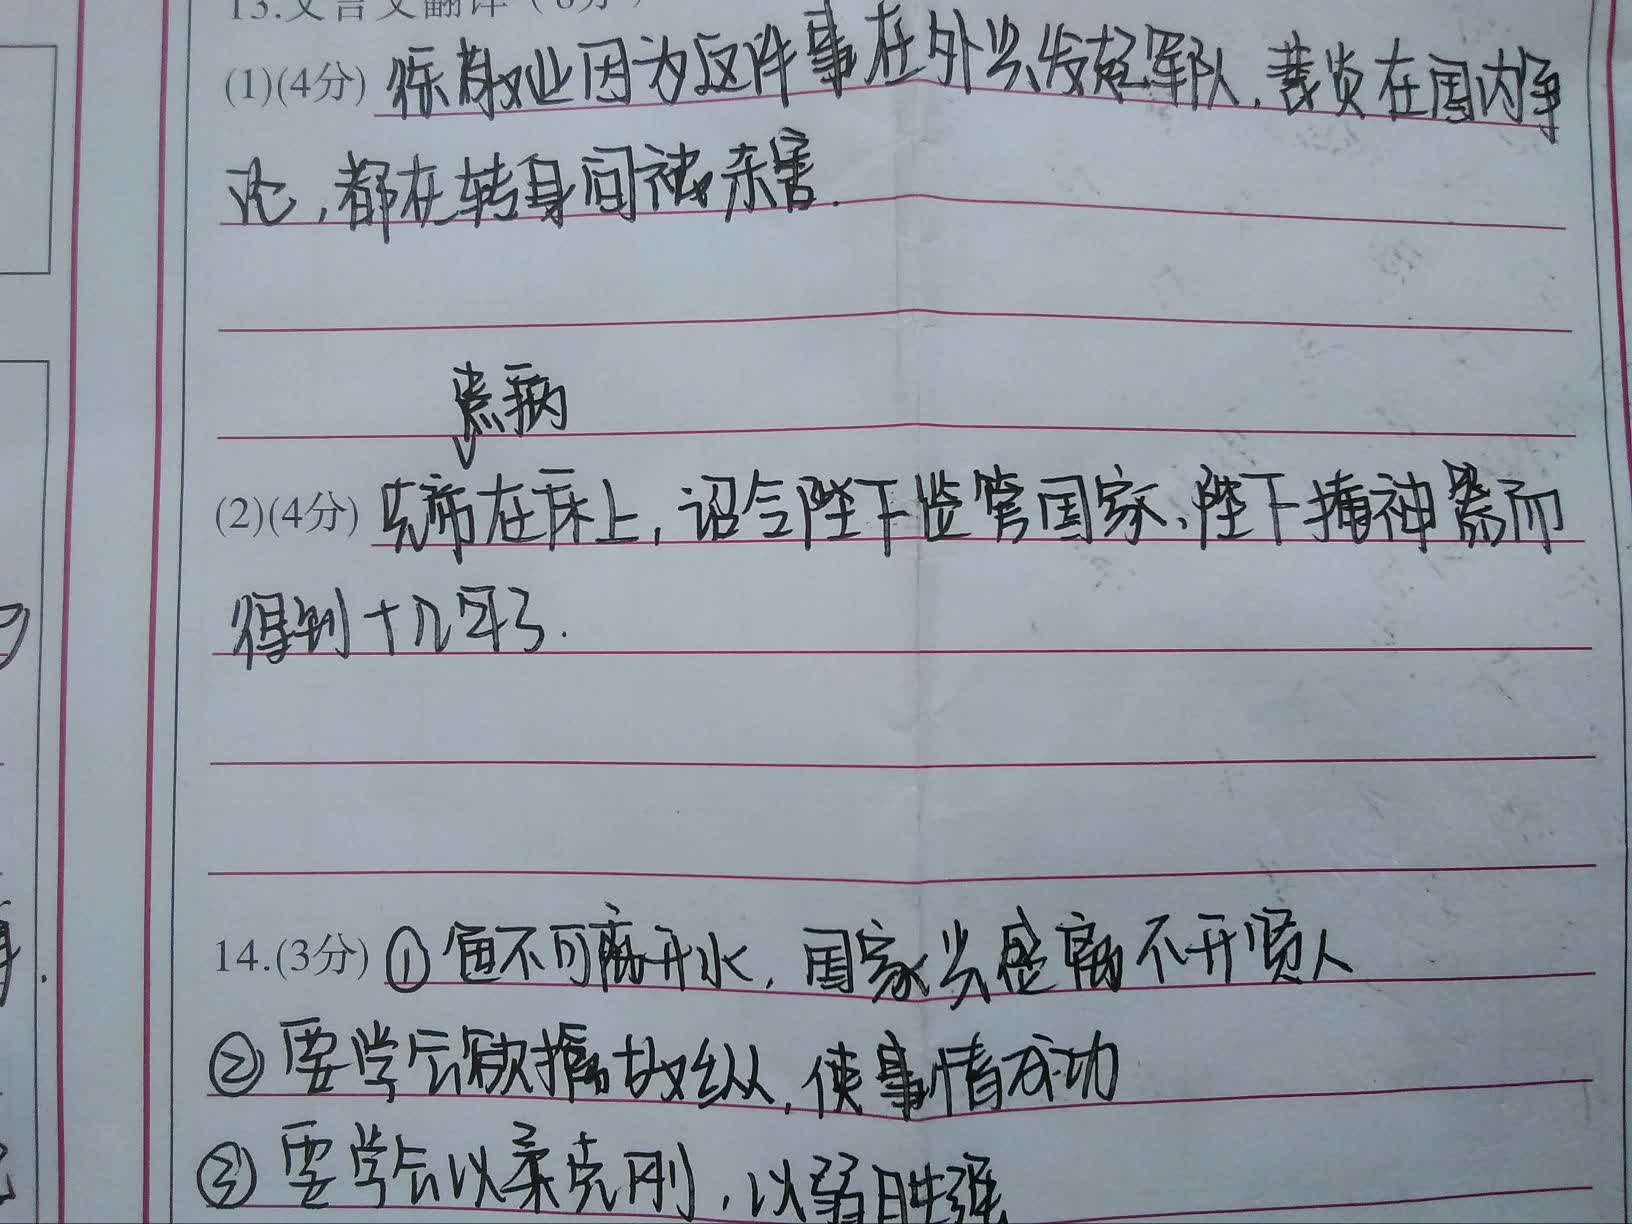 13.文言文翻译(8分)
(1)(4分) 徐敬业因为这件事在外头发起军队,裴炎在国内争
论,都在转身间被杀害.
患病
(2)(4分) 先帝在床上,诏令陛下监管国家、陛下掩神器而
得到十几年了.
14.(3分) ① 鱼不可离开水,国家兴盛离不开贤人
② 要学会欲擒故纵,使事情成功
③ 要学会以柔克刚,以弱胜强